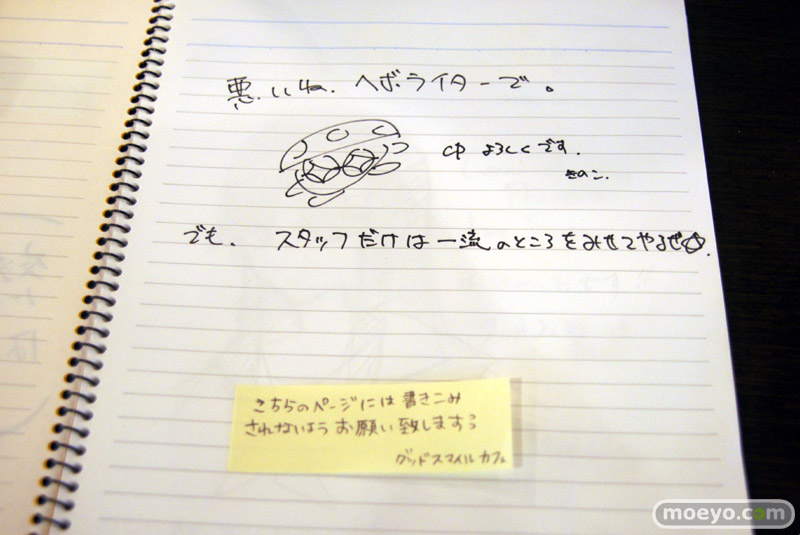 悪いね、ヘボライターで。
中 よろしくです。
きのこ。
でも、スタッフだけは一流のところをみせてやるぜ☆.
こちらのページには書きこみ
されないよう お願い致します
グッドスマイルカフェ
moeyo.com